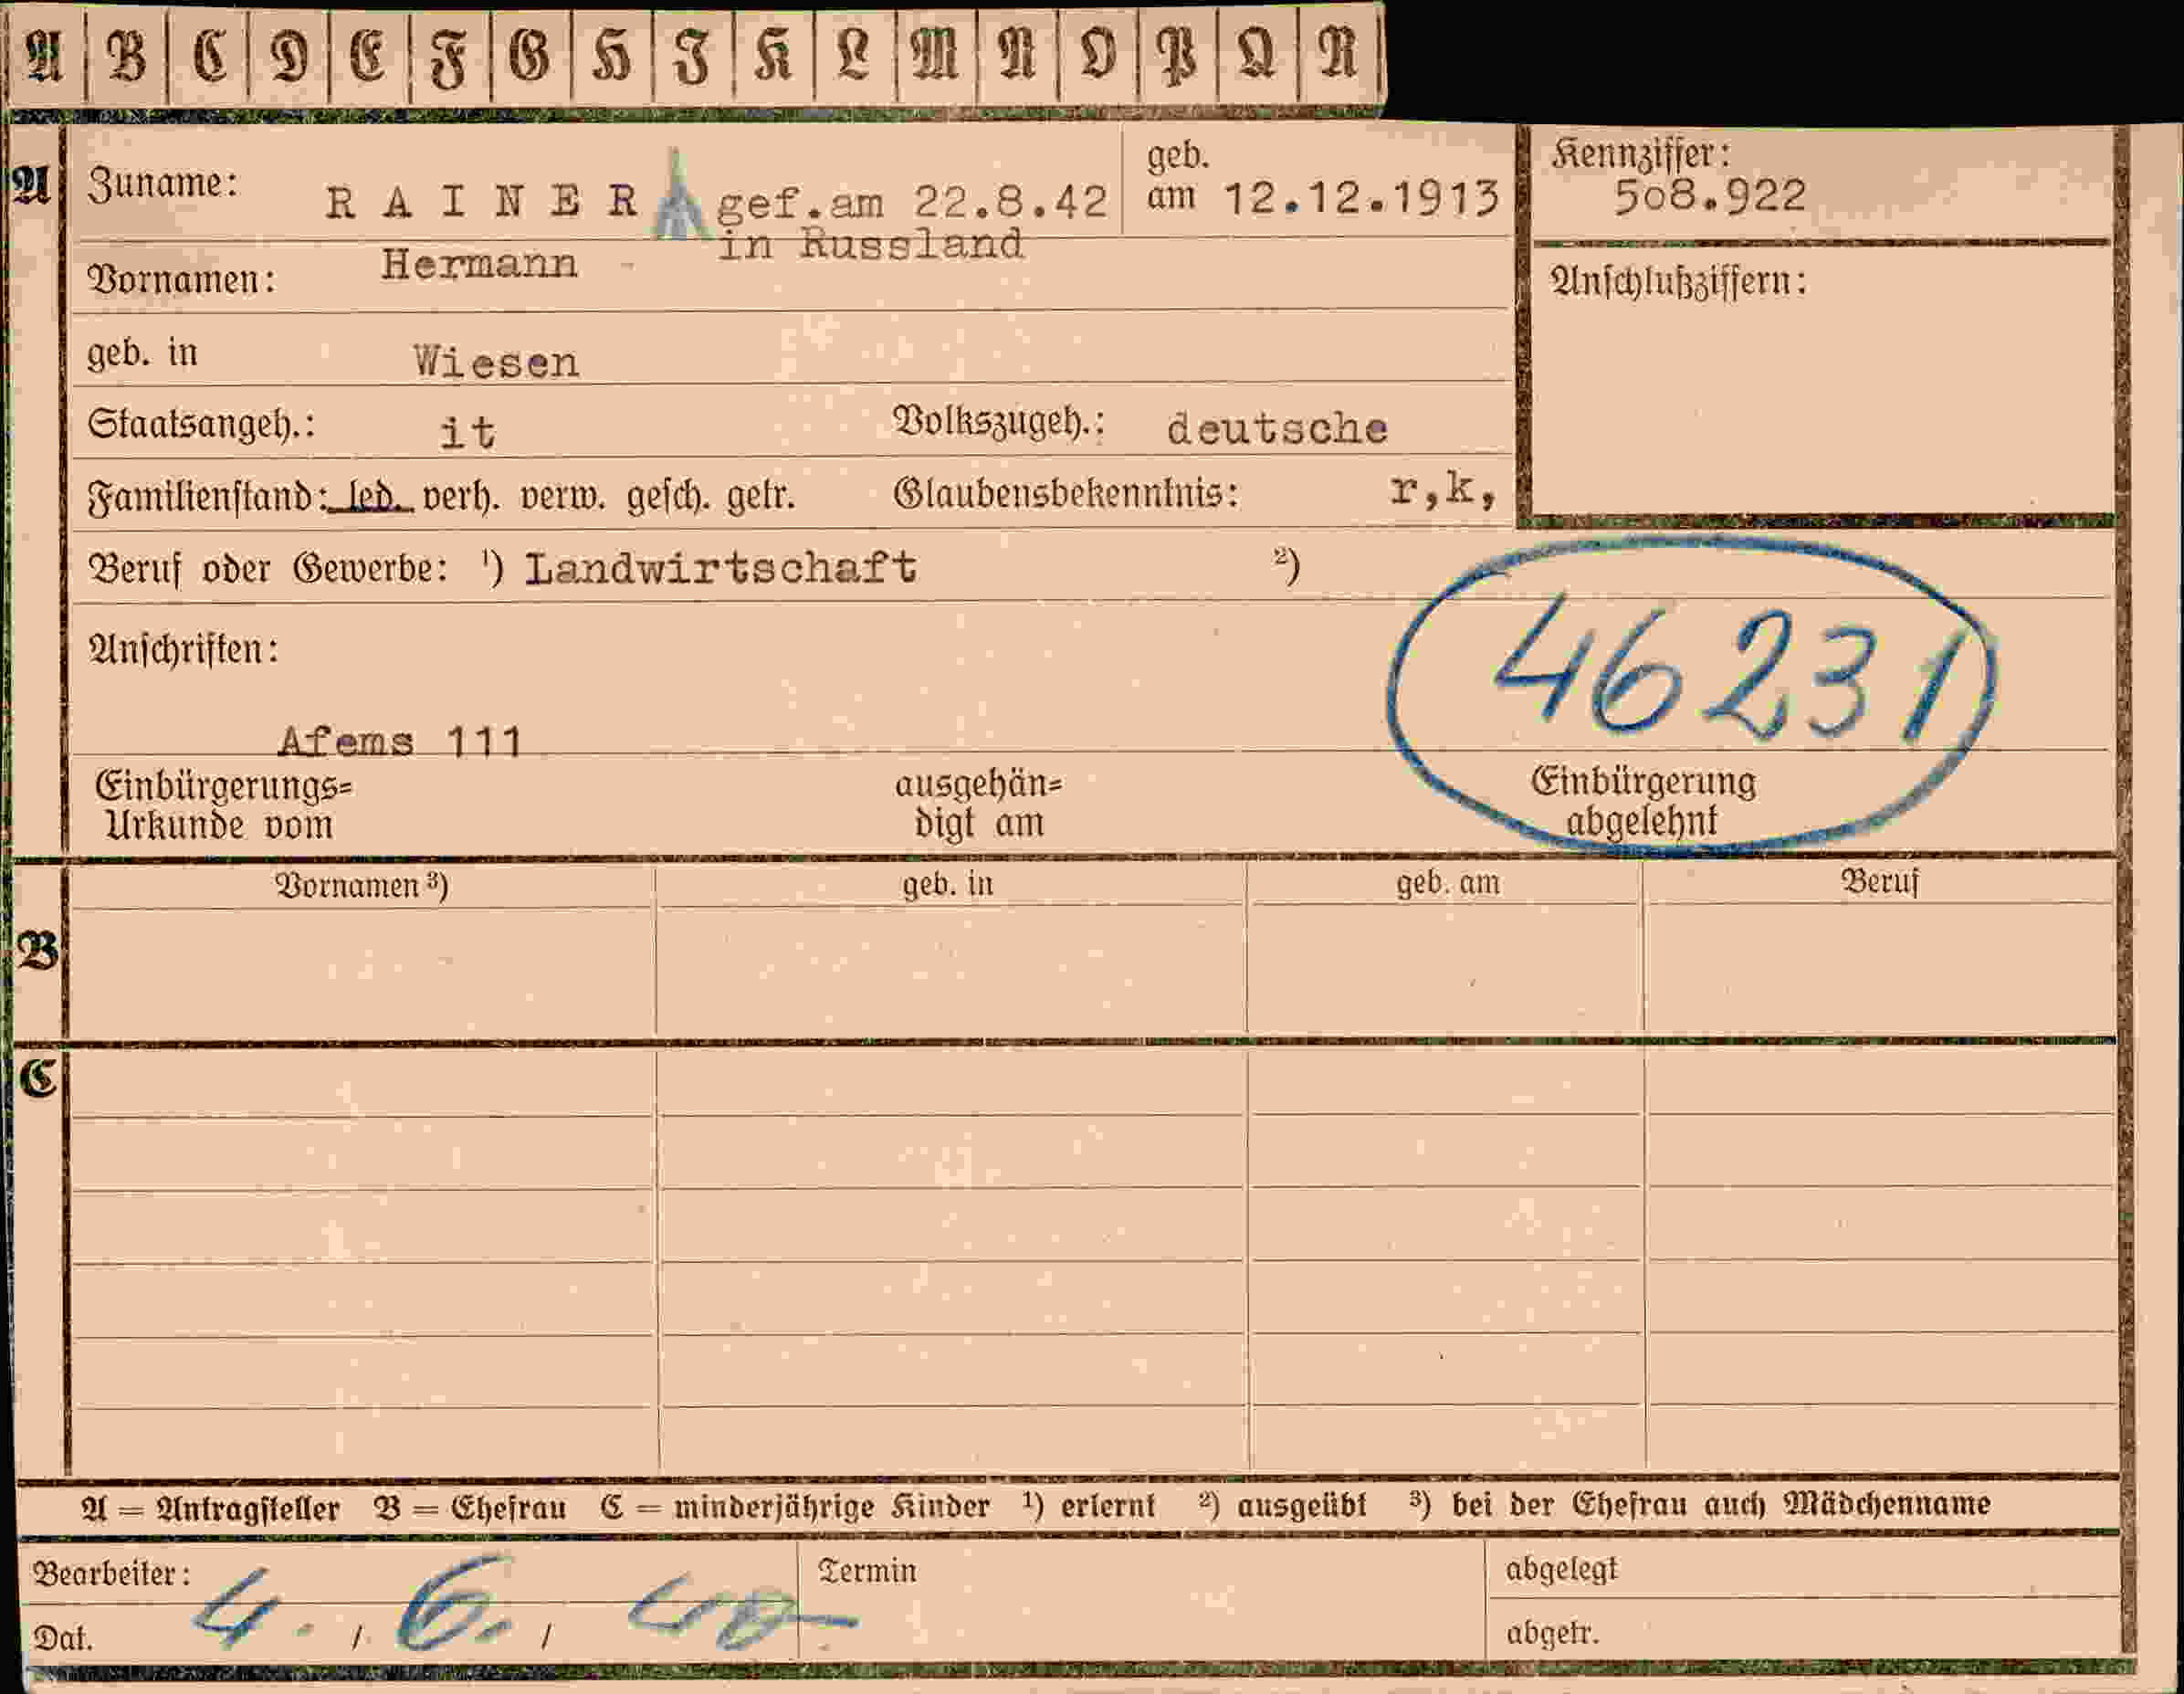 A B C D E F G H I K L M N O P Q R
A Zuname: RAINER gef.am 22.8.42 geb. am 12.12.1913 Kennziffer: 508.922
in Russland
Vornamen: Hermann Anschlußziffern:
geb. in Wiesen
Staatsangeh.: it Volkszugeh.: deutsche
Familienstand: led. verh. verw. gesch. getr. Glaubensbekenntnis: r,k,
Beruf oder Gewerbe: ¹) Landwirtschaft ²)
46231
Anschriften:
Afems 111
Einbürgerungs= ausgehän= Einbürgerung
Urkunde vom digt am abgelehnt
Vornamen ³) geb. in geb. am Beruf
B
C
A = Antragsteller B = Ehefrau C = minderjährige Kinder ¹) erlernt ²) ausgeübt ³) bei der Ehefrau auch Mädchenname
Bearbeiter: Termin abgelegt
Dat. 4. / 6. / 40 abgetr.